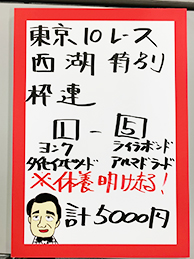 東京10レース
西湖特別
枠連
1-5
ヨンク ライラボンド
ダイモイカイザード アルマドラード
※休養明ける!
計5000円